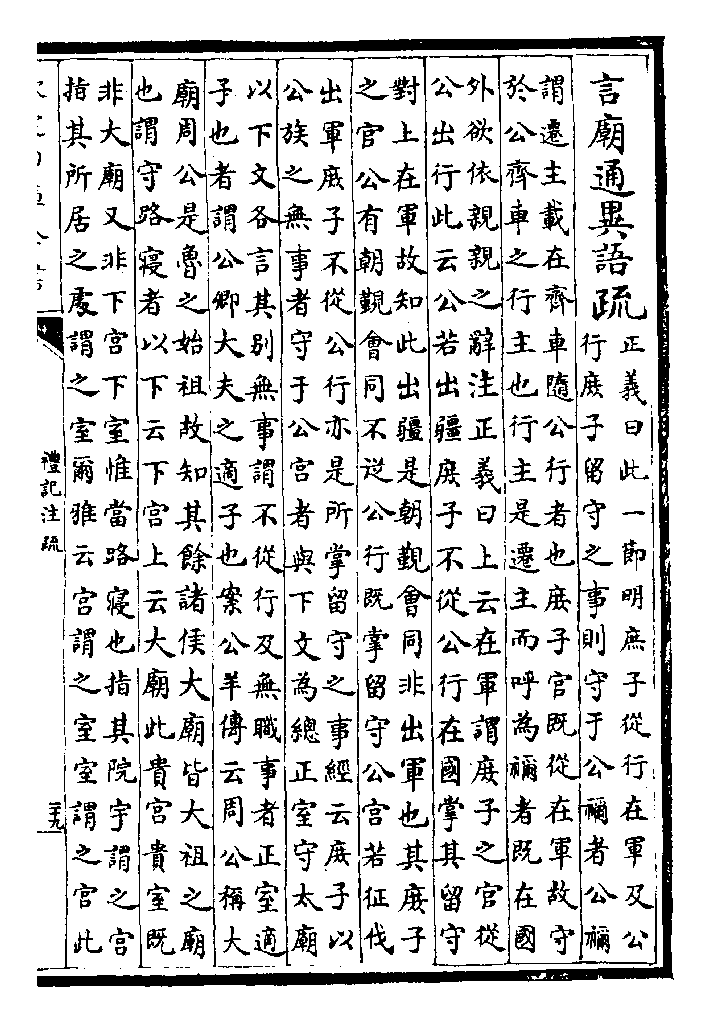 言廟通異語疏
正義曰此一節明庶子從行在軍及公
行庶子留守之事則守于公禰者公禰
謂遷主載在齊車隨公行者也庶子官既從在軍故守
於公齊車之行主也行主是遷主而呼為禰者既在國
外欲依親親之辭注正義曰上云在軍謂庶子之官從
公出行此云公若出疆庶子不從公行在國掌其留守
對上在軍故知此出疆是朝覲會同非出軍也其庶子
之官公有朝覲會同不從公行既掌留守公宮若征伐
出軍庶子不從公行亦是所掌留守之事經云庶子以
公族之無事者守于公宮者與下文為總正室守太廟
以下文各言其别無事謂不從行及無職事者正室適
子也者謂公卿大夫之適子也案公羊傳云周公稱大
廟周公是魯之始祖故知其餘諸侯大廟皆大祖之廟
也謂守路寢者以下云下宮上云大廟此貴宮貴室既
非大廟又非下宮下室惟當路寢也指其院宇謂之宮
指其所居之處謂之室爾雅云宮謂之室室謂之宮此
禮記注疏